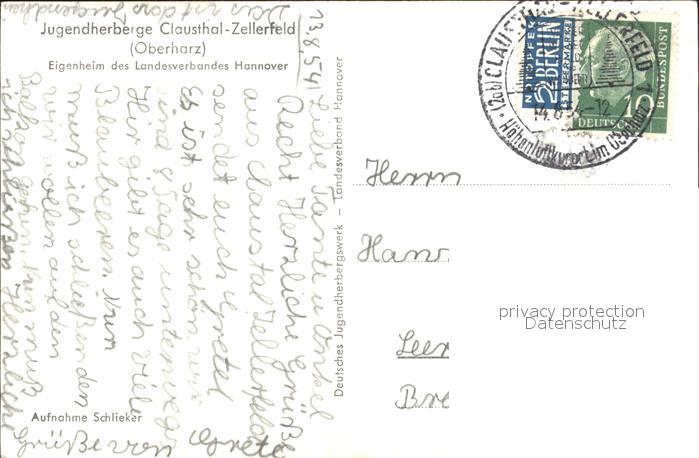 Das ist das Jugendh
Jugendherberge Clausthal-Zellerfeld
(Oberharz)
Eigenheim des Landesverbandes Hannover
13.8.54
Liebe Tante u Onkel
Recht Herzliche Grüße
aus Claustal Zellerfeld
sendet euch Gretel
Es ist sehr schön wir
sind 8 Tage unterwegs
Hir gibt es auch viele
Blaubeeren. Nun
muß ich schließen den
wir wollen auf den
gehen. Nun muß
ich schließen Herzliche
Grüße von Grete
Aufnahme Schlieker
Deutsches Jugendherbergswerk – Landesverband Hannover
NOTOPFER
2 BERLIN
STEUERMARKE
DEUTSCHE
BUNDESPOST
10
(20b) CLAUSTHAL-ZELLERFELD 1
-12
Höhenluftkurort im Oberharz
Herrn
Han
Leer
Bre
privacy protection
Datenschutz